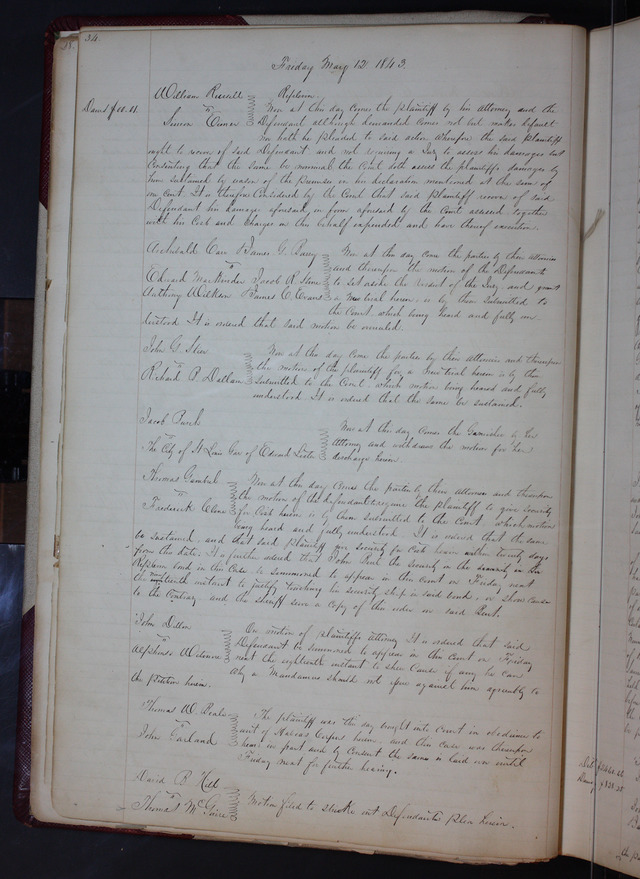 34.
Friday May 12 1843.
William Russell
vs
Simon
Replevin.
Now at this day comes the plaintiff by his Attorney and the
Defendant although demanded comes not but makes default
nor hath he pleaded to said action Wherefore the said plaintiff
ought to recover of said Defendant and not requiring a Jury to assess his damages but
consenting that the same be nominal the Court doth assess the plaintiffs damages by
him sustained by reason of the premises in his declaration mentioned at the sum of
one cent. It is therefore Considered by the Court that said plaintiff recover of said
Defendant his damages aforesaid in form aforesaid by the Court assessed together
with his Costs and Charges in this behalf expended and have thereof execution.
Archibald Carr & James G. Barry
vs
Edward Jacob R. Stine
Anthony & James C. Evans
Now at this day come the parties by their attornies
and thereupon the motion of the Defendants
to set aside the verdict of the Jury and grant
a New trial herein, is by them submitted to
the Court, which being heard and fully un
derstood It is ordered that said motion be overruled.
John G.
vs
Richard P. Dallam
Now at this day come the parties by their attornies and thereupon
the motion of the plaintiff for a New trial herein is by them
submitted to the Court, which motion being heard and fully
understood It is ordered that the same be sustained.
Jacob
vs
The City of St Louis Gar. of Edward
Now at this day comes the Garnishee by her
Attorney and withdraws the motion for her
discharge herein
Thomas Gambal
vs
Frederick
Now at this day comes the parties by their Attornies and thereupon
the motion of the defendant to require the plaintiff to give security
for Costs herein is by them submitted to the Court, which motion
being heard and fully understood. It is ordered that the same
be sustained, and that said plaintiff give security for Costs herein within twenty days
from this date. It is further ordered that John the security in the
Replevin bond in this Case be summoned to appear in this Court on Friday next
the nineteenth instant to justify touching his security ship in said bond, or show cause
to the Contrary and the sheriff serve a copy of this order on said
John Dillon
vs
Alphonso Wetmore
On motion of plaintiffs attorney It is ordered that said
Defendant be summoned to appear in this Court on Friday
next the eighteenth instant to shew Cause if any he can
Why a Mandamus should not issue against him agreeably to
the petition herein.
Thomas W.
vs
John Garland
The plaintiff was this day brought into court in obedience to
writ of Habeas Corpus herein, and this case was thereupon
heard in part and by Consent the same is laid over until
Friday next for further hearing.
David B. Hill
vs
Thomas McGuire
Motion filed to strike out Defendants plea herein.